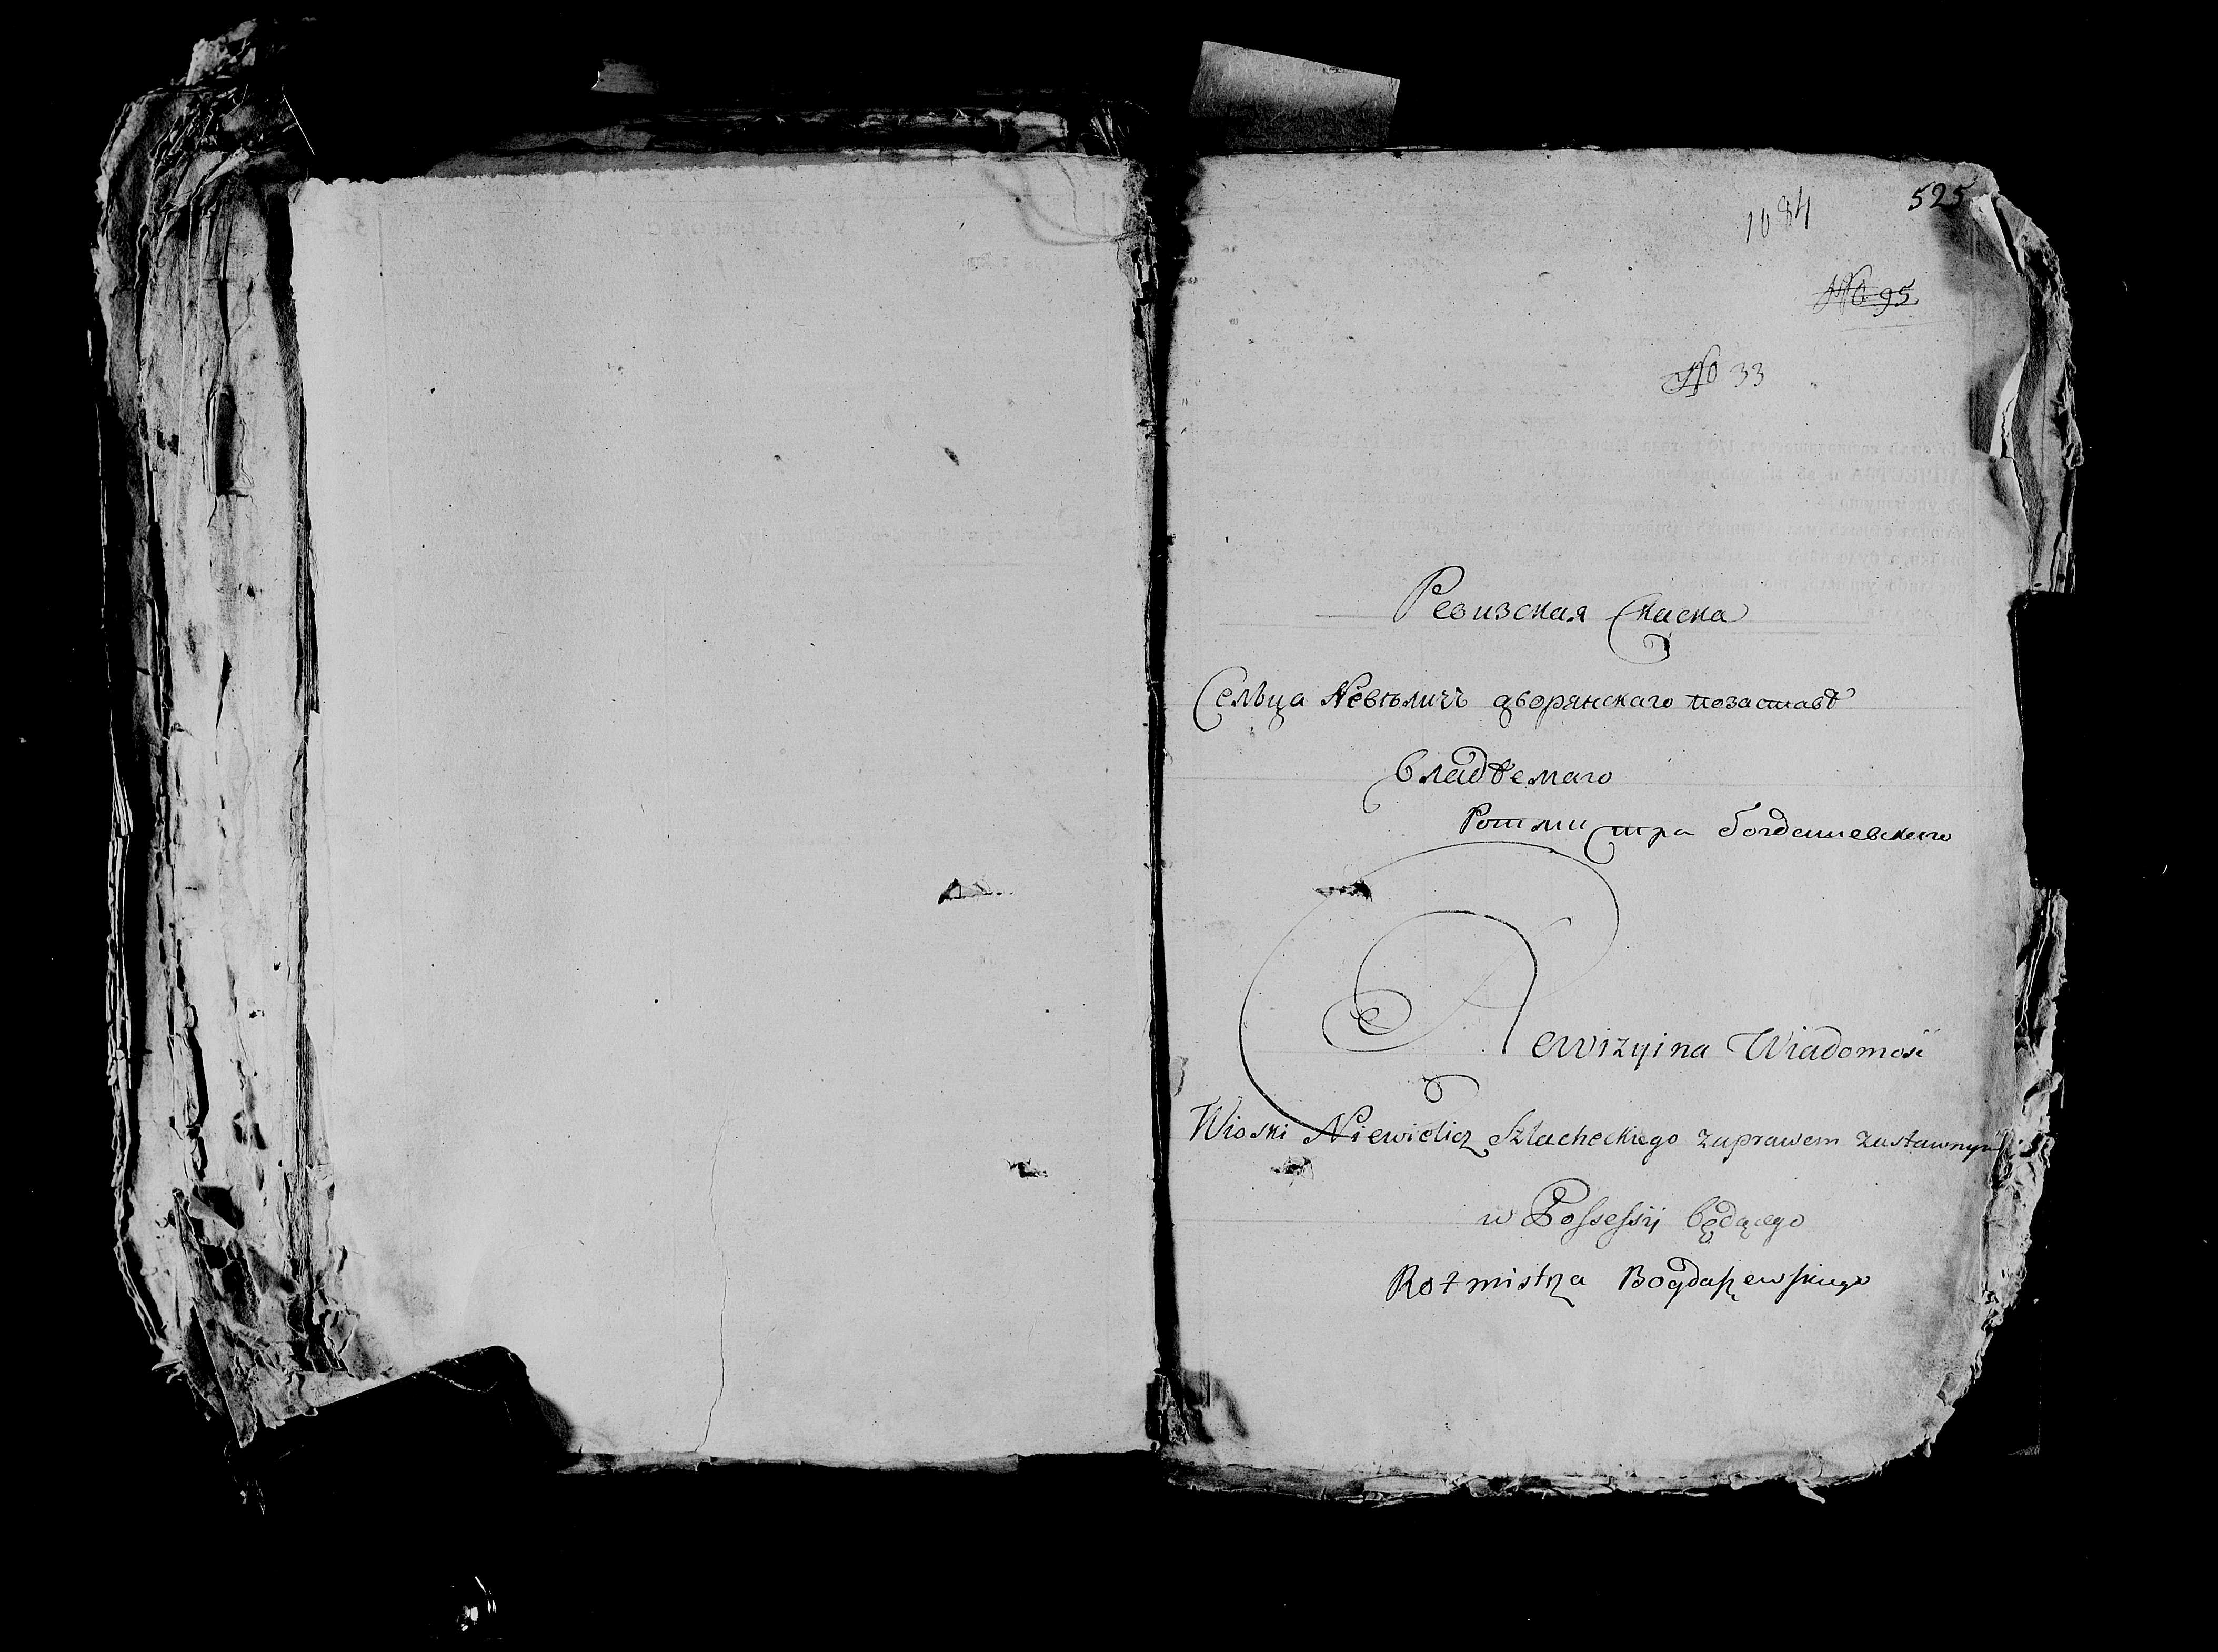 525
1084
No 95
No 33
Ревизская Скаска
Сельца Невѣличъ дворянскаго позаставѣ
владѣемаго
Ротмистра Богдашевскаго
Rewizyina Wiadomość
Wioski Niewielicz Szlacheckiego zaprawem zastawnym
w Possessyi będącego
Rotmistrza Bogdaszewskiego